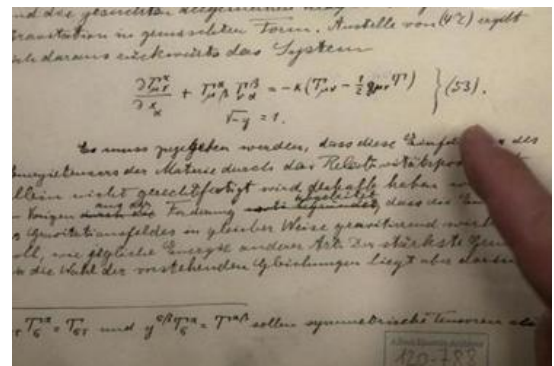 Gravitation in gemischter Form. Anstelle von (47) ergibt
sich daraus rückwärts das System
∂Γ^α_μν/∂x_α + Γ^α_μβ Γ^β_να = -κ(T_μν - ½ g_μν T) } (53).
√-g = 1.
Es muss zugegeben werden, dass diese Einführung des
Energietensors der Materie durch das Relativitätspostulat
allein nicht gerechtfertigt wird; deshalb haben wir
aus der abgeleitet
Vorigen durch die Forderung, dass die
Gravitationsfeldes in gleicher Weise gravitierend wirken
soll, wie jegliche Energie anderer Art. Der stärkste Grund
die Wahl der vorstehenden Gleichungen liegt aber darin
T^α_σ = T_στ und g^σβ T^α_σ = T^αβ sollen symmetrische Tensoren
120-788